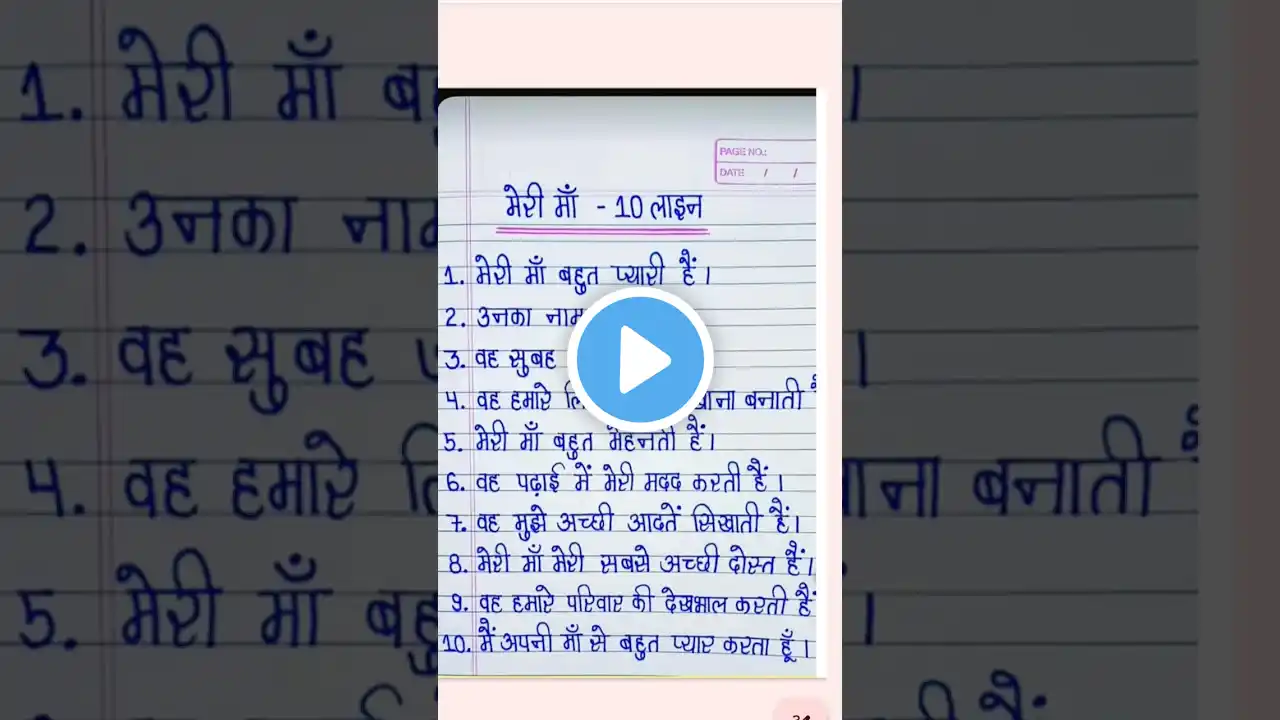 PAGE NO.:
DATE / /
मेरी माँ - 10 लाइन
1. मेरी माँ बहुत प्यारी हैं।
2. उनका नाम
3. वह सुबह
4. वह हमारे खाना बनाती हैं
5. मेरी माँ बहुत मेहनती हैं।
6. वह पढ़ाई में मेरी मदद करती हैं।
7. वह मुझे अच्छी आदतें सिखाती हैं।
8. मेरी माँ मेरी सबसे अच्छी दोस्त हैं।
9. वह हमारे परिवार की देखभाल करती हैं
10. मैं अपनी माँ से बहुत प्यार करता हूँ।